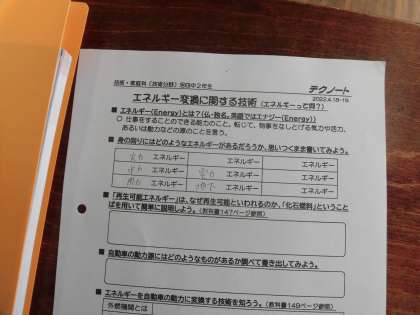 技術・家庭科（技術分野）
中2年生
テクノート
エネルギー変換に関する技術（エネルギーって何？）
2022.4.18-19
■ エネルギー（Energy）とは？（仏・独名。英語ではエナジー（Energy））
○ 仕事をすることのできる能力のこと。転じて、物事をなしとげる気力や活力、
あるいは動力などの源のことを言う。
■ 身の回りにはどのようなエネルギーがあるだろうか、思いつくまま書いてみよう。
エネルギー エネルギー エネルギー
エネルギー エネルギー エネルギー
エネルギー 地下 エネルギー エネルギー
■ 「再生可能エネルギー」は、なぜ再生可能といわれるのか、「化石燃料」ということ
ばを用いて簡単に説明しよう。（教科書147ページ参照）
■ 自動車の動力源にはどのようなものがあるか調べて書き出してみよう。
■ エネルギーを自動車の動力に変換する技術を知ろう。（教科書149ページ参照）
外燃機関とは